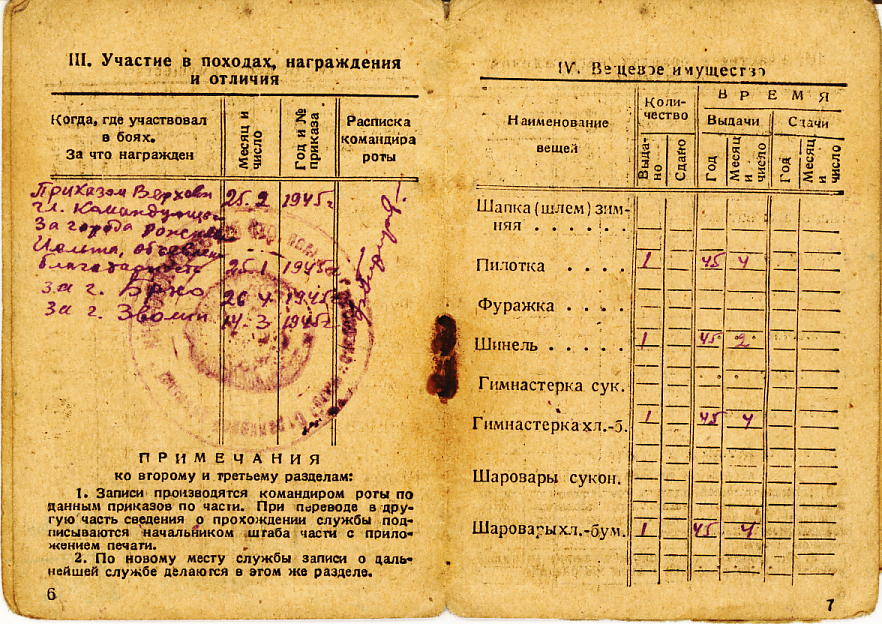 III. Участие в походах, награждения
и отличия
Когда, где участвовал
в боях.
За что награжден
Месяц и
число
Год и №
приказа
Расписка
командира
роты
Приказом Верховн 25. 2 1945 г
Гл. Командующ
За города
благодарность 25. 1 1945 г
За г. Брно 26 4 1945 г
За г. Зволен 14. 3 1945 г
ПРИМЕЧАНИЯ
ко второму и третьему разделам:
1. Записи производятся командиром роты по
данным приказов по части. При переводе в дру-
гую часть сведения о прохождении службы под-
писываются начальником штаба части с прило-
жением печати.
2. По новому месту службы записи о даль-
нейшей службе делаются в этом же разделе.
6
IV. Вещевое имущество
Наименование
вещей
Коли-
чество
ВРЕМЯ
Выдачи Сдачи
Выда-
но
Сдано
Год
Месяц
и
число
Год
Месяц
и
число
Шапка (шлем) зим-
няя . . . . . .
Пилотка . . . . 1 45 4
Фуражка . . . .
Шинель . . . . . 1 45 2
Гимнастерка сук.
Гимнастерка хл.-б. 1 45 4
Шаровары сукон.
Шаровары хл.-бум. 1 45 4
7